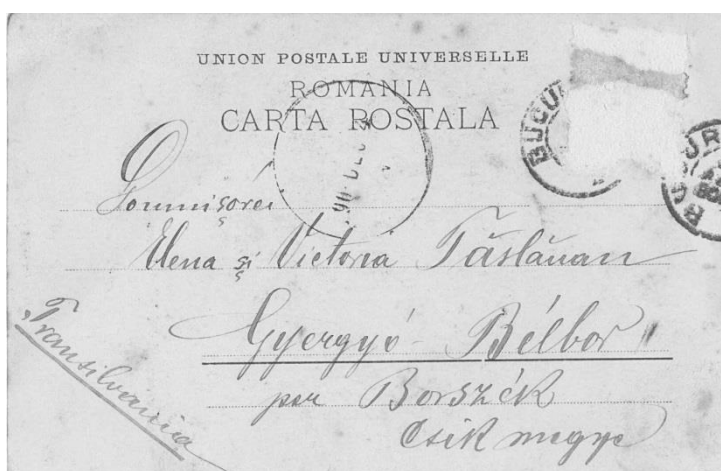 UNION POSTALE UNIVERSELLE
ROMANIA
CARTA POSTALA
Domnișorei
Elena și Victoria Tăslăuan
Gyergyó-Bélbor
per Borszék
Csik megye
Transilvania